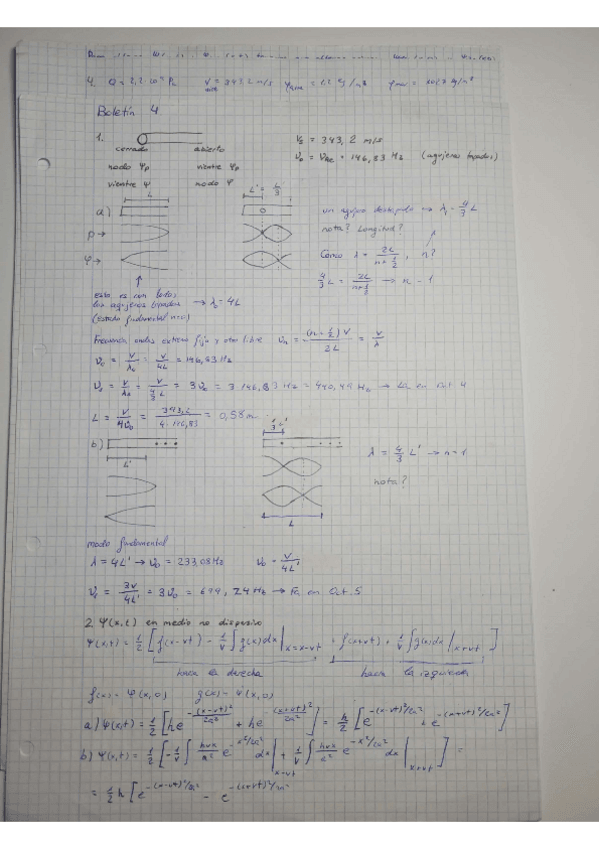 4.
Boletín 4
1.
cerrado abierto
nodo Ψp vientre Ψp
vientre Ψ nodo Ψ
V_s = 343,2 m/s
ν_0 = ν_Re = 146,83 Hz (agujeros tapados)
L
L' = L/3
a)
p →
Ψ →
un agujero destapado → λ_1 = 4/3 L
nota? Longitud?
Como λ = 2L/(n+1/2), n?
4/3 L = 2L/(n+1/2) → n = 1
esta es con todos
los agujeros tapados → λ_0 = 4L
(Estado fundamental n=0)
Frecuencia ondas extremo fijo y otro libre ν_n = (n+1/2)V/2L = V/λ
ν_0 = V/λ_0 = V/4L = 146,83 Hz
ν_1 = V/λ_1 = V/(4/3 L) = 3ν_0 = 3·146,83 Hz = 440,49 Hz → La en oct 4
L = V/4ν_0 = 343,2/(4·146,83) = 0,58 m
b)
L'
1/3 L'
λ = 4/3 L' → n=1
nota?
L
modo fundamental
λ = 4L' → ν_0 = 233,08 Hz ν_0 = V/4L'
ν_1 = 3V/4L' = 3ν_0 = 699,24 Hz → Fa en Oct. 5
2. Ψ(x,t) en medio no dispersivo
Ψ(x,t) = 1/2 [ f(x-vt) - 1/v ∫g(x)dx |_{x=x-vt} + f(x+vt) + 1/v ∫g(x)dx |_{x+vt} ]
hacia la derecha hacia la izquierda
f(x) = Ψ(x,0) g(x) = Ψ(x,0)
a) Ψ(x,t) = 1/2 [ he^{-(x-vt)²/2a²} + he^{-(x+vt)²/2a²} ] = h/2 [ e^{-(x-vt)²/2a²} + e^{-(x+vt)²/2a²} ]
b) Ψ(x,t) = 1/2 [ -1/v ∫ hvx/a² e^{-x²/2a²} dx |_{x-vt} + 1/v ∫ hvx/a² e^{-x²/2a²} dx |_{x+vt} ] =
= 1/2 h [ e^{-(x-vt)²/2a²} - e^{-(x+vt)²/2a²}